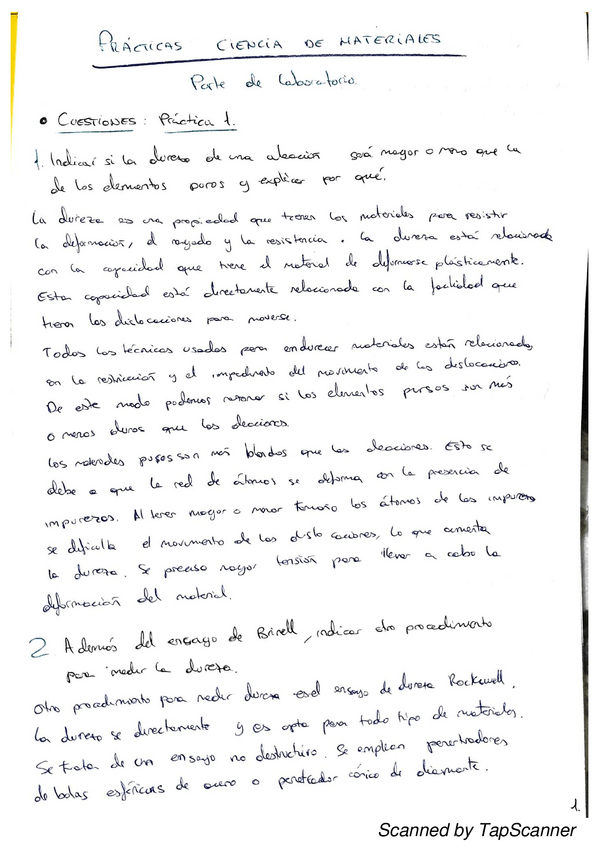 PRÁCTICAS CIENCIA DE MATERIALES
Parte de Laboratorio.
• CUESTIONES: Práctica 1.
1. Indicar si la dureza de una aleación será mayor o menor que la
de los elementos puros y explicar por qué.
La dureza es una propiedad que tienen los materiales para resistir
la deformación, el rayado y la resistencia. La dureza está relacionada
con la capacidad que tiene el material de deformarse plásticamente.
Esta capacidad está directamente relacionada con la facilidad que
tienen las dislocaciones para moverse.
Todas las técnicas usadas para endurecer materiales están relacionadas
con la restricción y el impedimento del movimiento de las dislocaciones.
De este modo podemos razonar si los elementos puros son más
o menos duros que las aleaciones.
Los materiales puros son más blandos que las aleaciones. Esto se
debe a que la red de átomos se deforma con la presencia de
impurezas. Al tener mayor o menor tamaño los átomos de las impurezas
se dificulta el movimiento de las dislocaciones, lo que aumenta
la dureza. Se precisa mayor tensión para llevar a cabo la
deformación del material.
2 Además del ensayo de Brinell, indicar otro procedimiento
para medir la dureza.
Otro procedimiento para medir dureza es el ensayo de dureza Rockwell.
La dureza se directamente y es apto para todo tipo de materiales.
Se trata de un ensayo no destructivo. Se emplean penetradores
de bolas esféricas de acero o penetrador cónico de diamante.
1.
Scanned by TapScanner